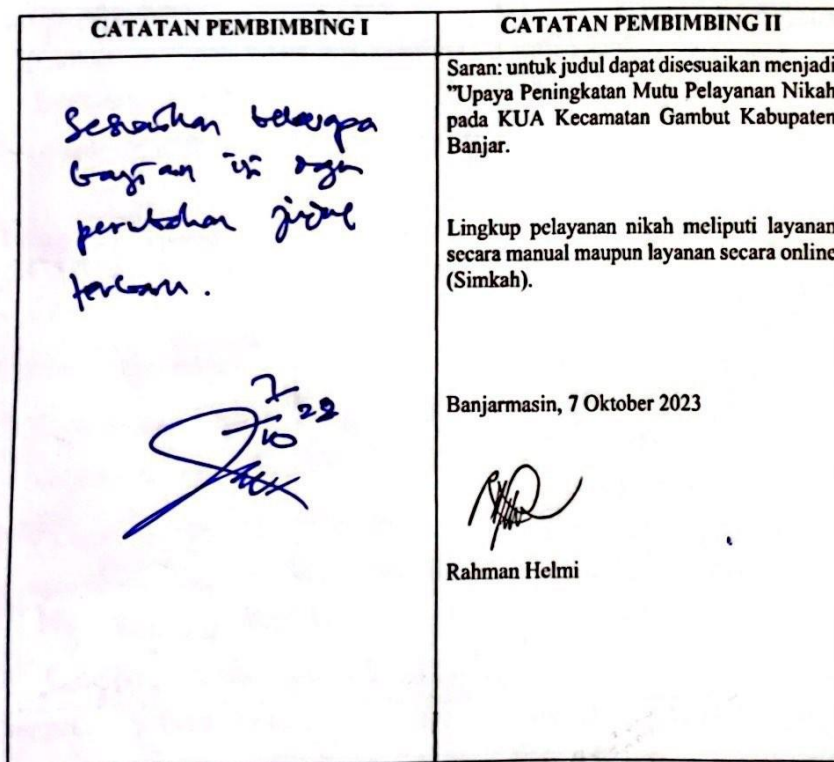 CATATAN PEMBIMBING I
Sesuaikan beberapa
bagian isi dgn
perubahan judul
terbaru.
7
10
CATATAN PEMBIMBING II
Saran: untuk judul dapat disesuaikan menjadi
”Upaya Peningkatan Mutu Pelayanan Nikah
pada KUA Kecamatan Gambut Kabupaten
Banjar.
Lingkup pelayanan nikah meliputi layanan
secara manual maupun layanan secara online
(Simkah).
Banjarmasin, 7 Oktober 2023
Rahman Helmi